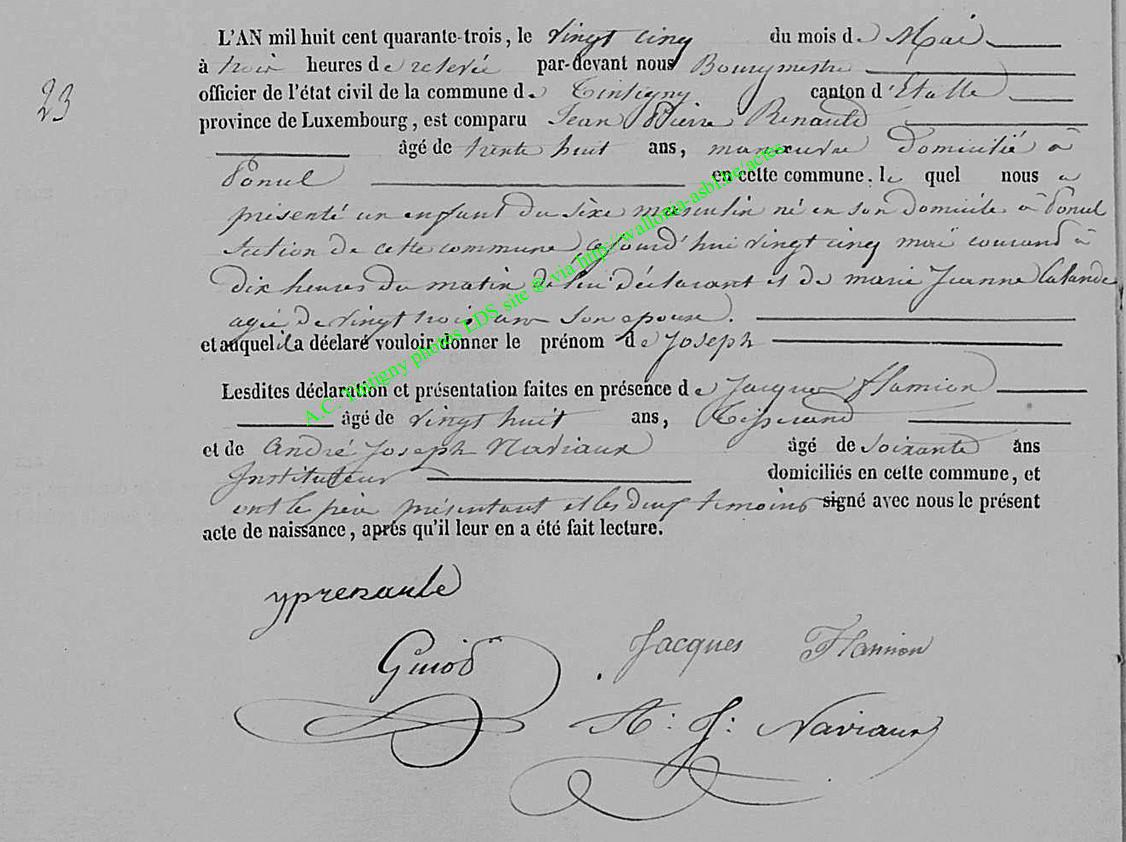 L'AN mil huit cent quarante-trois, le vingt cinq du mois de Mai
à trois heures de relevée par-devant nous Bourgmestre
23
officier de l'état civil de la commune de Tintigny canton d'Etalle
province de Luxembourg, est comparu Jean Pierre Renaude
âgé de trente huit ans, manœuvre domicilié à
Ponul en cette commune, le quel nous a
présenté un enfant du sèxe masculin né en son domicile à Ponul
Section de cette commune cejourd'hui vingt cinq mai courand à
dix heures du matin de lui déclarant et de marie Jeanne Lalande
agée de vingt trois ans son epouse.
et auquel il a déclaré vouloir donner le prénom de Joseph
Lesdites déclaration et présentation faites en présence de Jacques flamion
âgé de vingt huit ans, Tisserand
et de André Joseph Naviaux âgé de soixante ans
Instituteur domiciliés en cette commune, et
ont le père présentant et les deux temoins signé avec nous le présent
acte de naissance, après qu'il leur en a été fait lecture.
A.C. Tintigny photos LDS site @ via http://wallonia-asbl.be/actes
yprenaude
Guiod
Jacques Flamion
A: J: Naviaux